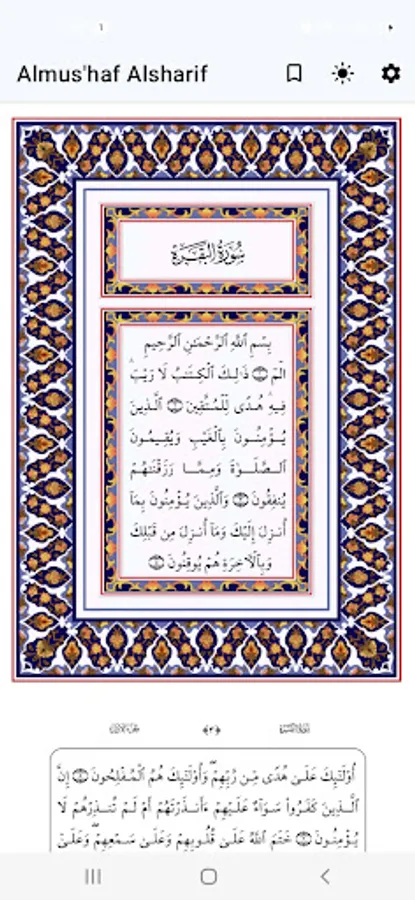 Almus'haf Alsharif
سُورَةُ الْبَقَرَةِ
بِسْمِ ٱللَّهِ ٱلرَّحْمَٰنِ ٱلرَّحِيمِ
الٓمٓ ۝١ ذَٰلِكَ ٱلْكِتَٰبُ لَا رَيْبَۛ
فِيهِۛ هُدًى لِّلْمُتَّقِينَ ۝٢ ٱلَّذِينَ
يُؤْمِنُونَ بِٱلْغَيْبِ وَيُقِيمُونَ
ٱلصَّلَوٰةَ وَمِمَّا رَزَقْنَٰهُمْ
يُنفِقُونَ ۝٣ وَٱلَّذِينَ يُؤْمِنُونَ بِمَآ
أُنزِلَ إِلَيْكَ وَمَآ أُنزِلَ مِن قَبْلِكَ
وَبِٱلْءَاخِرَةِ هُمْ يُوقِنُونَ ۝٤
﴿٣﴾
أُوْلَٰٓئِكَ عَلَىٰ هُدًى مِّن رَّبِّهِمْۖ وَأُوْلَٰٓئِكَ هُمُ ٱلْمُفْلِحُونَ ۝٥ إِنَّ
ٱلَّذِينَ كَفَرُوا۟ سَوَآءٌ عَلَيْهِمْ ءَأَنذَرْتَهُمْ أَمْ لَمْ تُنذِرْهُمْ لَا
يُؤْمِنُونَ ۝٦ خَتَمَ ٱللَّهُ عَلَىٰ قُلُوبِهِمْ وَعَلَىٰ سَمْعِهِمْۖ وَعَلَىٰٓ